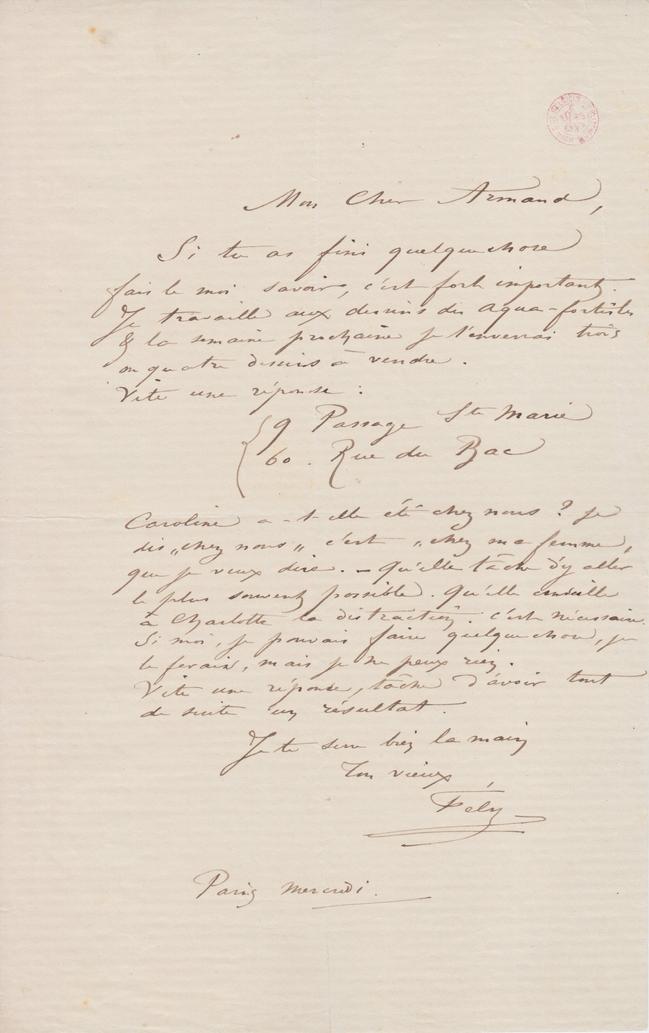 Mon Cher Armand,
Si tu as fini quelque chose
fais le moi savoir, c'est fort important.
Je travaille aux dessins des aqua-fortistes
& la semaine prochaine je t'enverrai trois
ou quatre dessins à vendre.
Vite une réponse :
9 Passage Ste Marie
60. Rue du Bac
Caroline a-t-elle été chez nous ? je
dis „chez nous„ c'est „chez ma femme„
que je veux dire. — qu'elle tâche d'y aller
le plus souvent possible. qu'elle conseille
à Charlotte la distraction. c'est nécessaire.
Si moi, je pouvais faire quelque chose, je
le ferais, mais je ne peux rien.
Vite une réponse, tâche d'avoir tout
de suite un résultat.
Je te serre bien la main
Ton vieux
Fély
Paris mercredi.